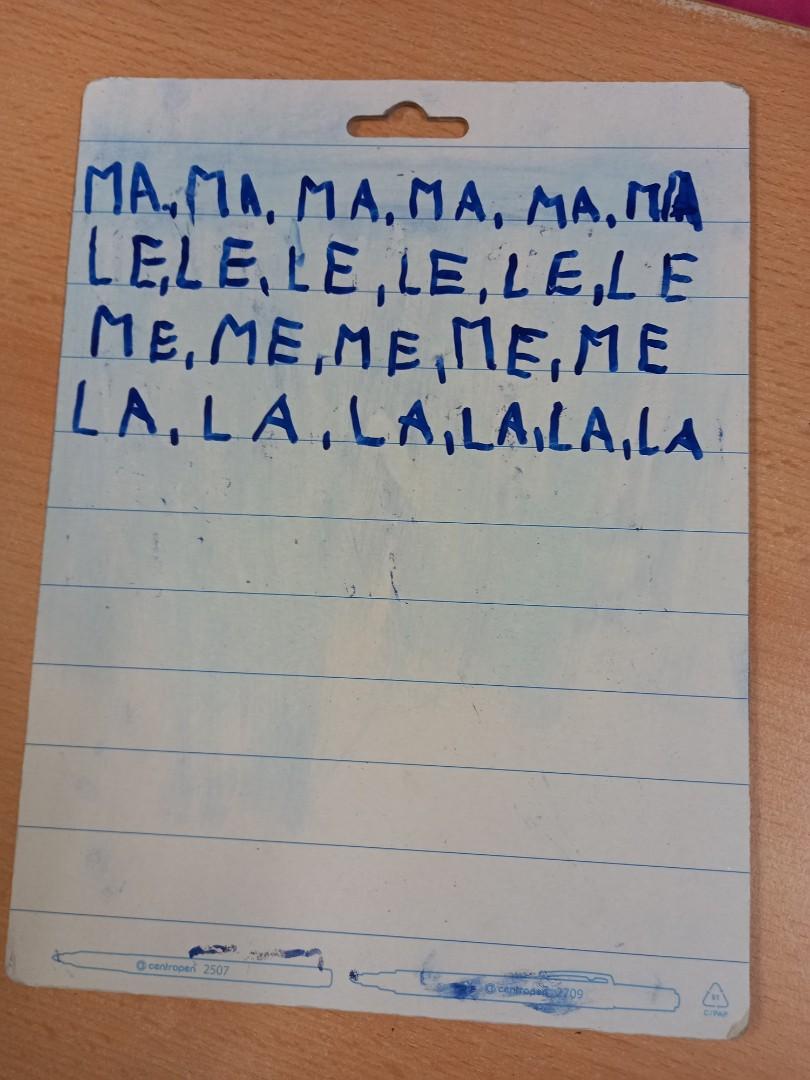 MA, MA, MA, MA, MA, MA
LE, LE, LE, LE, LE, LE
ME, ME, ME, ME, ME
LA, LA, LA, LA, LA, LA
@ centropen 2507
@ centropen 2709
81
C/PAP